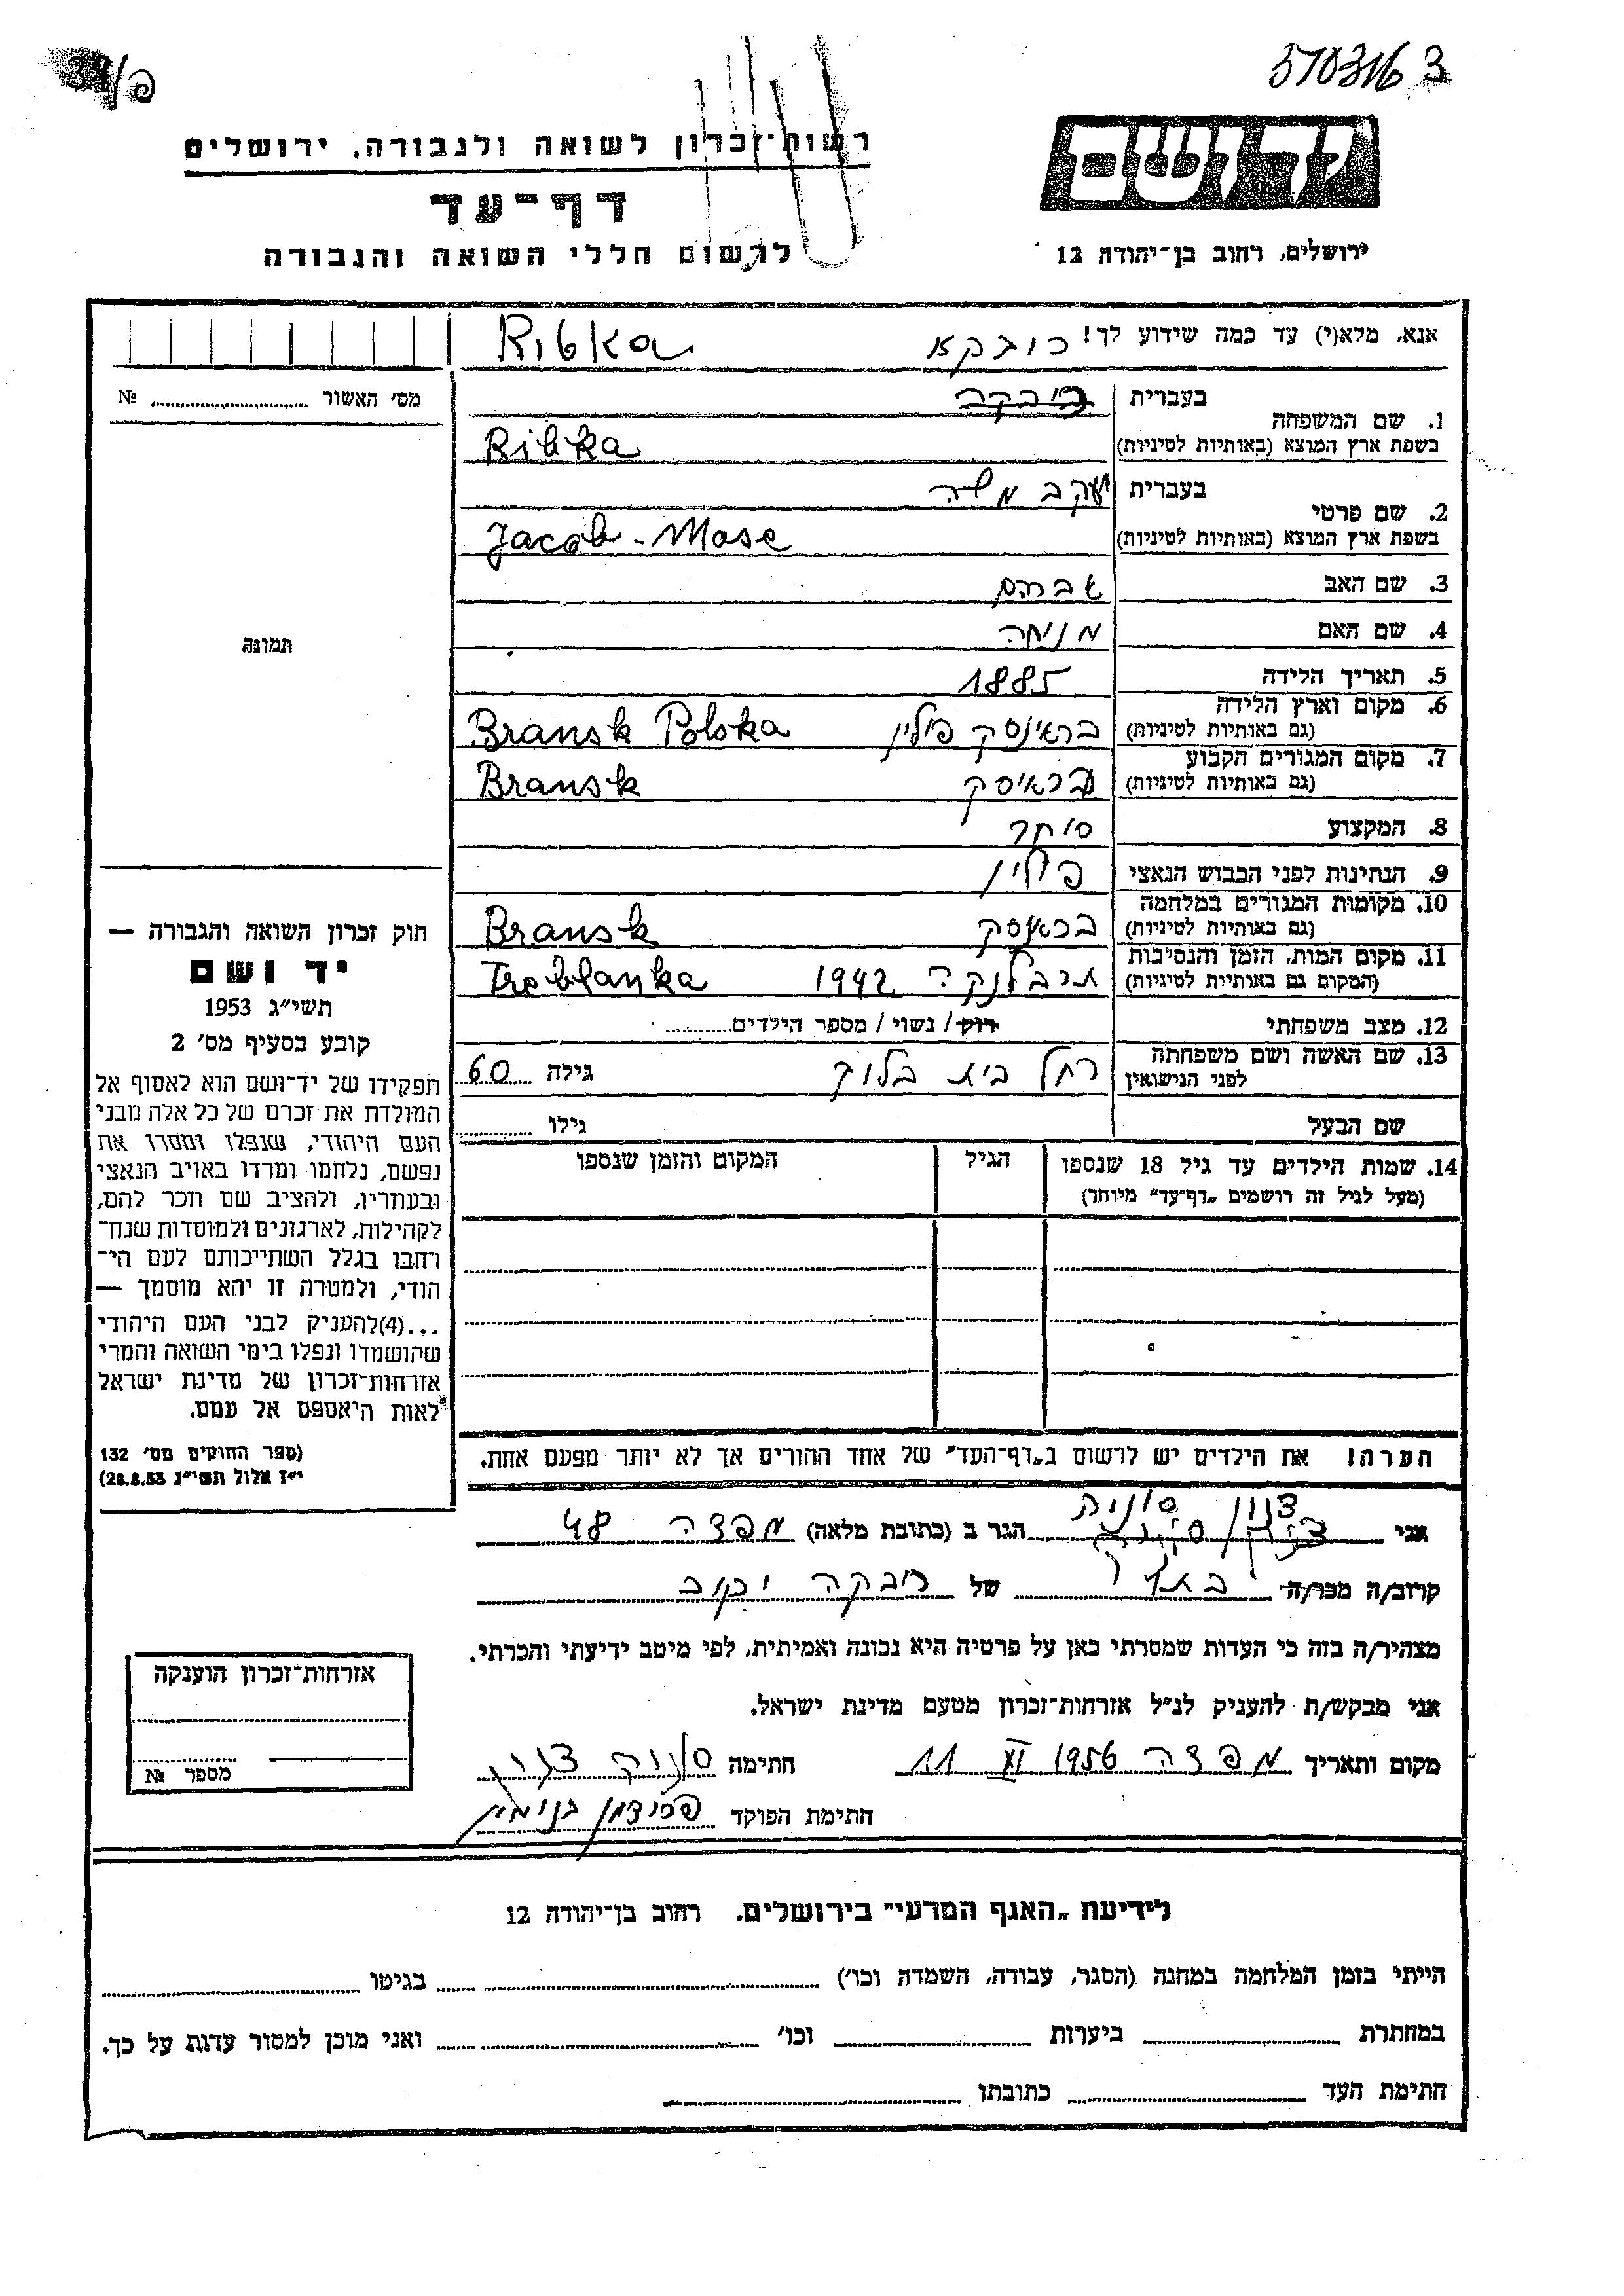 370316 3
יד ושם
ירושלים, רחוב בן־יהודה 12
רשות־זכרון לשואה ולגבורה, ירושלים
דף־עד
לרשום חללי השואה והגבורה
אנא, מלא(י) עד כמה שידוע לך! ריבקא Ribka
מס׳ האשור № ....................
1. שם המשפחה
בעברית ריבקה
בשפת ארץ המוצא (באותיות לטיניות) Ribka
2. שם פרטי
בעברית יעקב משה
בשפת ארץ המוצא (באותיות לטיניות) Jacob-Mose
3. שם האב אברהם
4. שם האם מניחה
5. תאריך הלידה 1885
6. מקום וארץ הלידה
(גם באותיות לטיניות) בראינסק פולין Bransk Polska
7. מקום המגורים הקבוע
(גם באותיות לטיניות) בראיסק Bransk
8. המקצוע סוחר
9. הנתינות לפני הכבוש הנאצי פולין
10. מקומות המגורים במלחמה
(גם באותיות לטיניות) בראנסק Bransk
11. מקום המות, הזמן והנסיבות
(המקום גם באותיות לטיניות) טרבלנקה 1942 Treblanka
12. מצב משפחתי רוק / נשוי / מספר הילדים..........
13. שם האשה ושם משפחתה
לפני הנישואין רחל בית בלוק גילה 60
שם הבעל גילו ..........
14. שמות הילדים עד גיל 18 שנספו
(מעל לגיל זה רושמים „דף־עד” מיוחד)
הגיל
המקום והזמן שנספו
הערה! את הילדים יש לרשום ב„דף־העד” של אחד ההורים אך לא יותר מפעם אחת.
תמונה
חוק זכרון השואה והגבורה —
יד ושם
תשי״ג 1953
קובע בסעיף מס׳ 2
תפקידו של יד־ושם הוא לאסוף אל
המולדת את זכרם של כל אלה מבני
העם היהודי, שנפלו ומסרו את
נפשם, נלחמו ומרדו באויב הנאצי
ובעוזריו, ולהציב שם וזכר להם,
לקהילות, לארגונים ולמוסדות שנח־
רחבו בגלל השתייכותם לעם הי־
הודי, ולמטרה זו יהא מוסמך —
...(4)להעניק לבני העם היהודי
שהושמדו ונפלו בימי השואה והמרי
אזרחות־זכרון של מדינת ישראל
לאות היאספם אל עמם.
(ספר החוקים מס׳ 132
י״ז אלול תשי״ג 28.8.53)
צנון סוניה
אני הגר ב (כתובת מלאה) מפצה 48
קרוב/ה מכר/ה בתו של ריבקה יעקב
מצהיר/ה בזה כי העדות שמסרתי כאן על פרטיה היא נכונה ואמיתית, לפי מיטב ידיעתי והכרתי.
אני מבקש/ת להעניק לנ״ל אזרחות־זכרון מטעם מדינת ישראל.
מקום ותאריך מפצה 11 XI 1956 חתימה סוניה צנון
חתימת הפוקד
אזרחות־זכרון הוענקה
מספר №
לידיעת „האגף המדעי” בירושלים. רחוב בן־יהודה 12
הייתי בזמן המלחמה במחנה (הסגר, עבודה, השמדה וכו׳) .................... בגיטו ....................
במחתרת .................... ביערות .................... וכו׳ .................... ואני מוכן למסור עדות על כך.
חתימת העד .................... כתובתו ....................